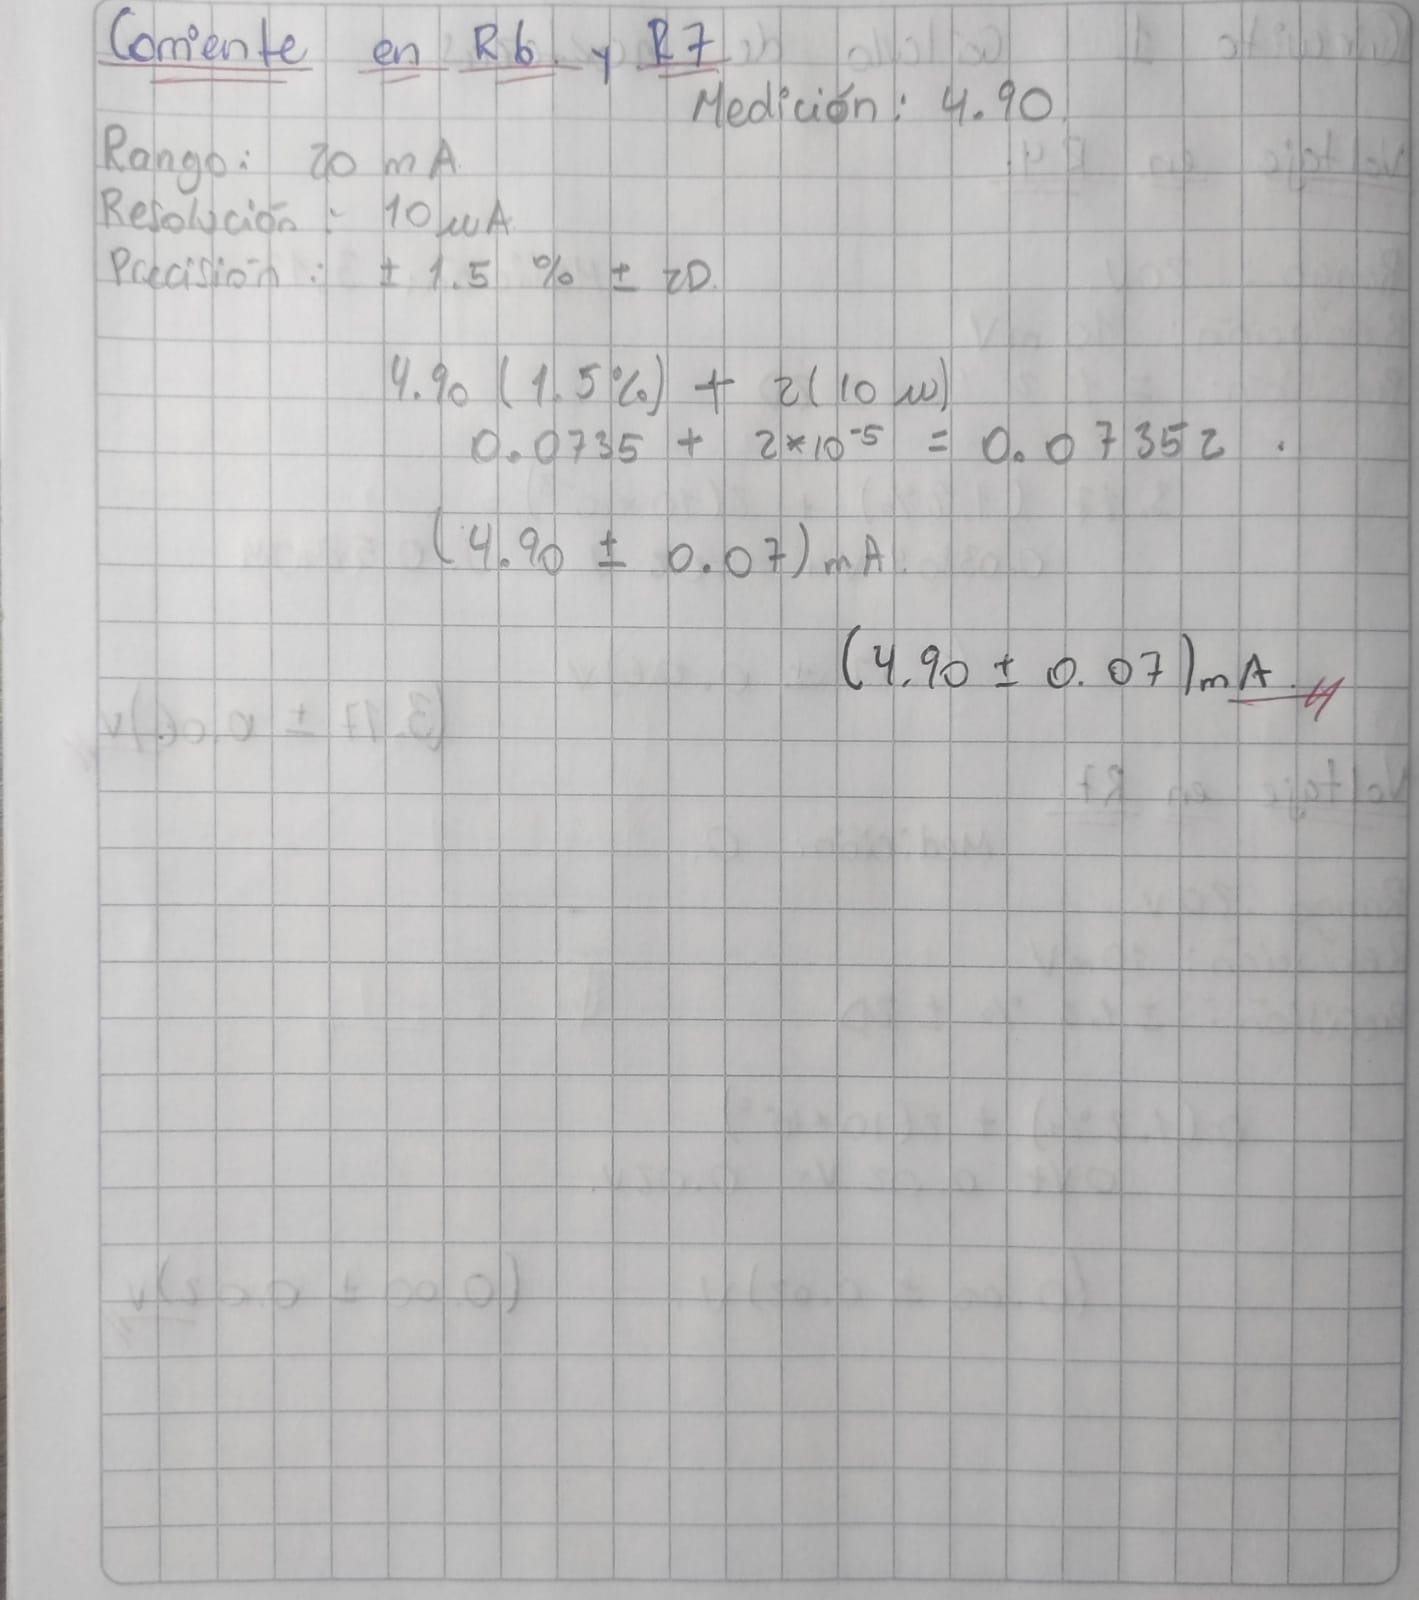 Corriente en R6 y R7
Medición: 4.90
Rango: 20 mA
Resolución: 10 μA
Precisión: ± 1.5 % ± 2D.
4.90 (1.5%) + 2(10 μ)
0.0735 + 2*10⁻⁵ = 0.07352.
(4.90 ± 0.07) mA.
(4.90 ± 0.07) mA.